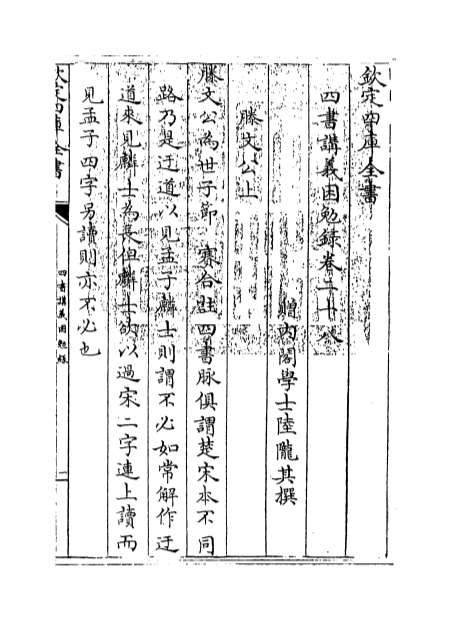 欽定四庫全書
四書講義困勉録卷二十八
贈内閣學士陸隴其撰
滕文公上
滕文公為世子節　賽合註四書脉俱謂楚宋本不同
路乃是迂道以見孟子麟士則謂不必如常解作迂
道來見麟士為長但麟士欲以過宋二字連上讀而
見孟子四字另讀則亦不必也
欽定四庫全書
四書講義困勉録
一